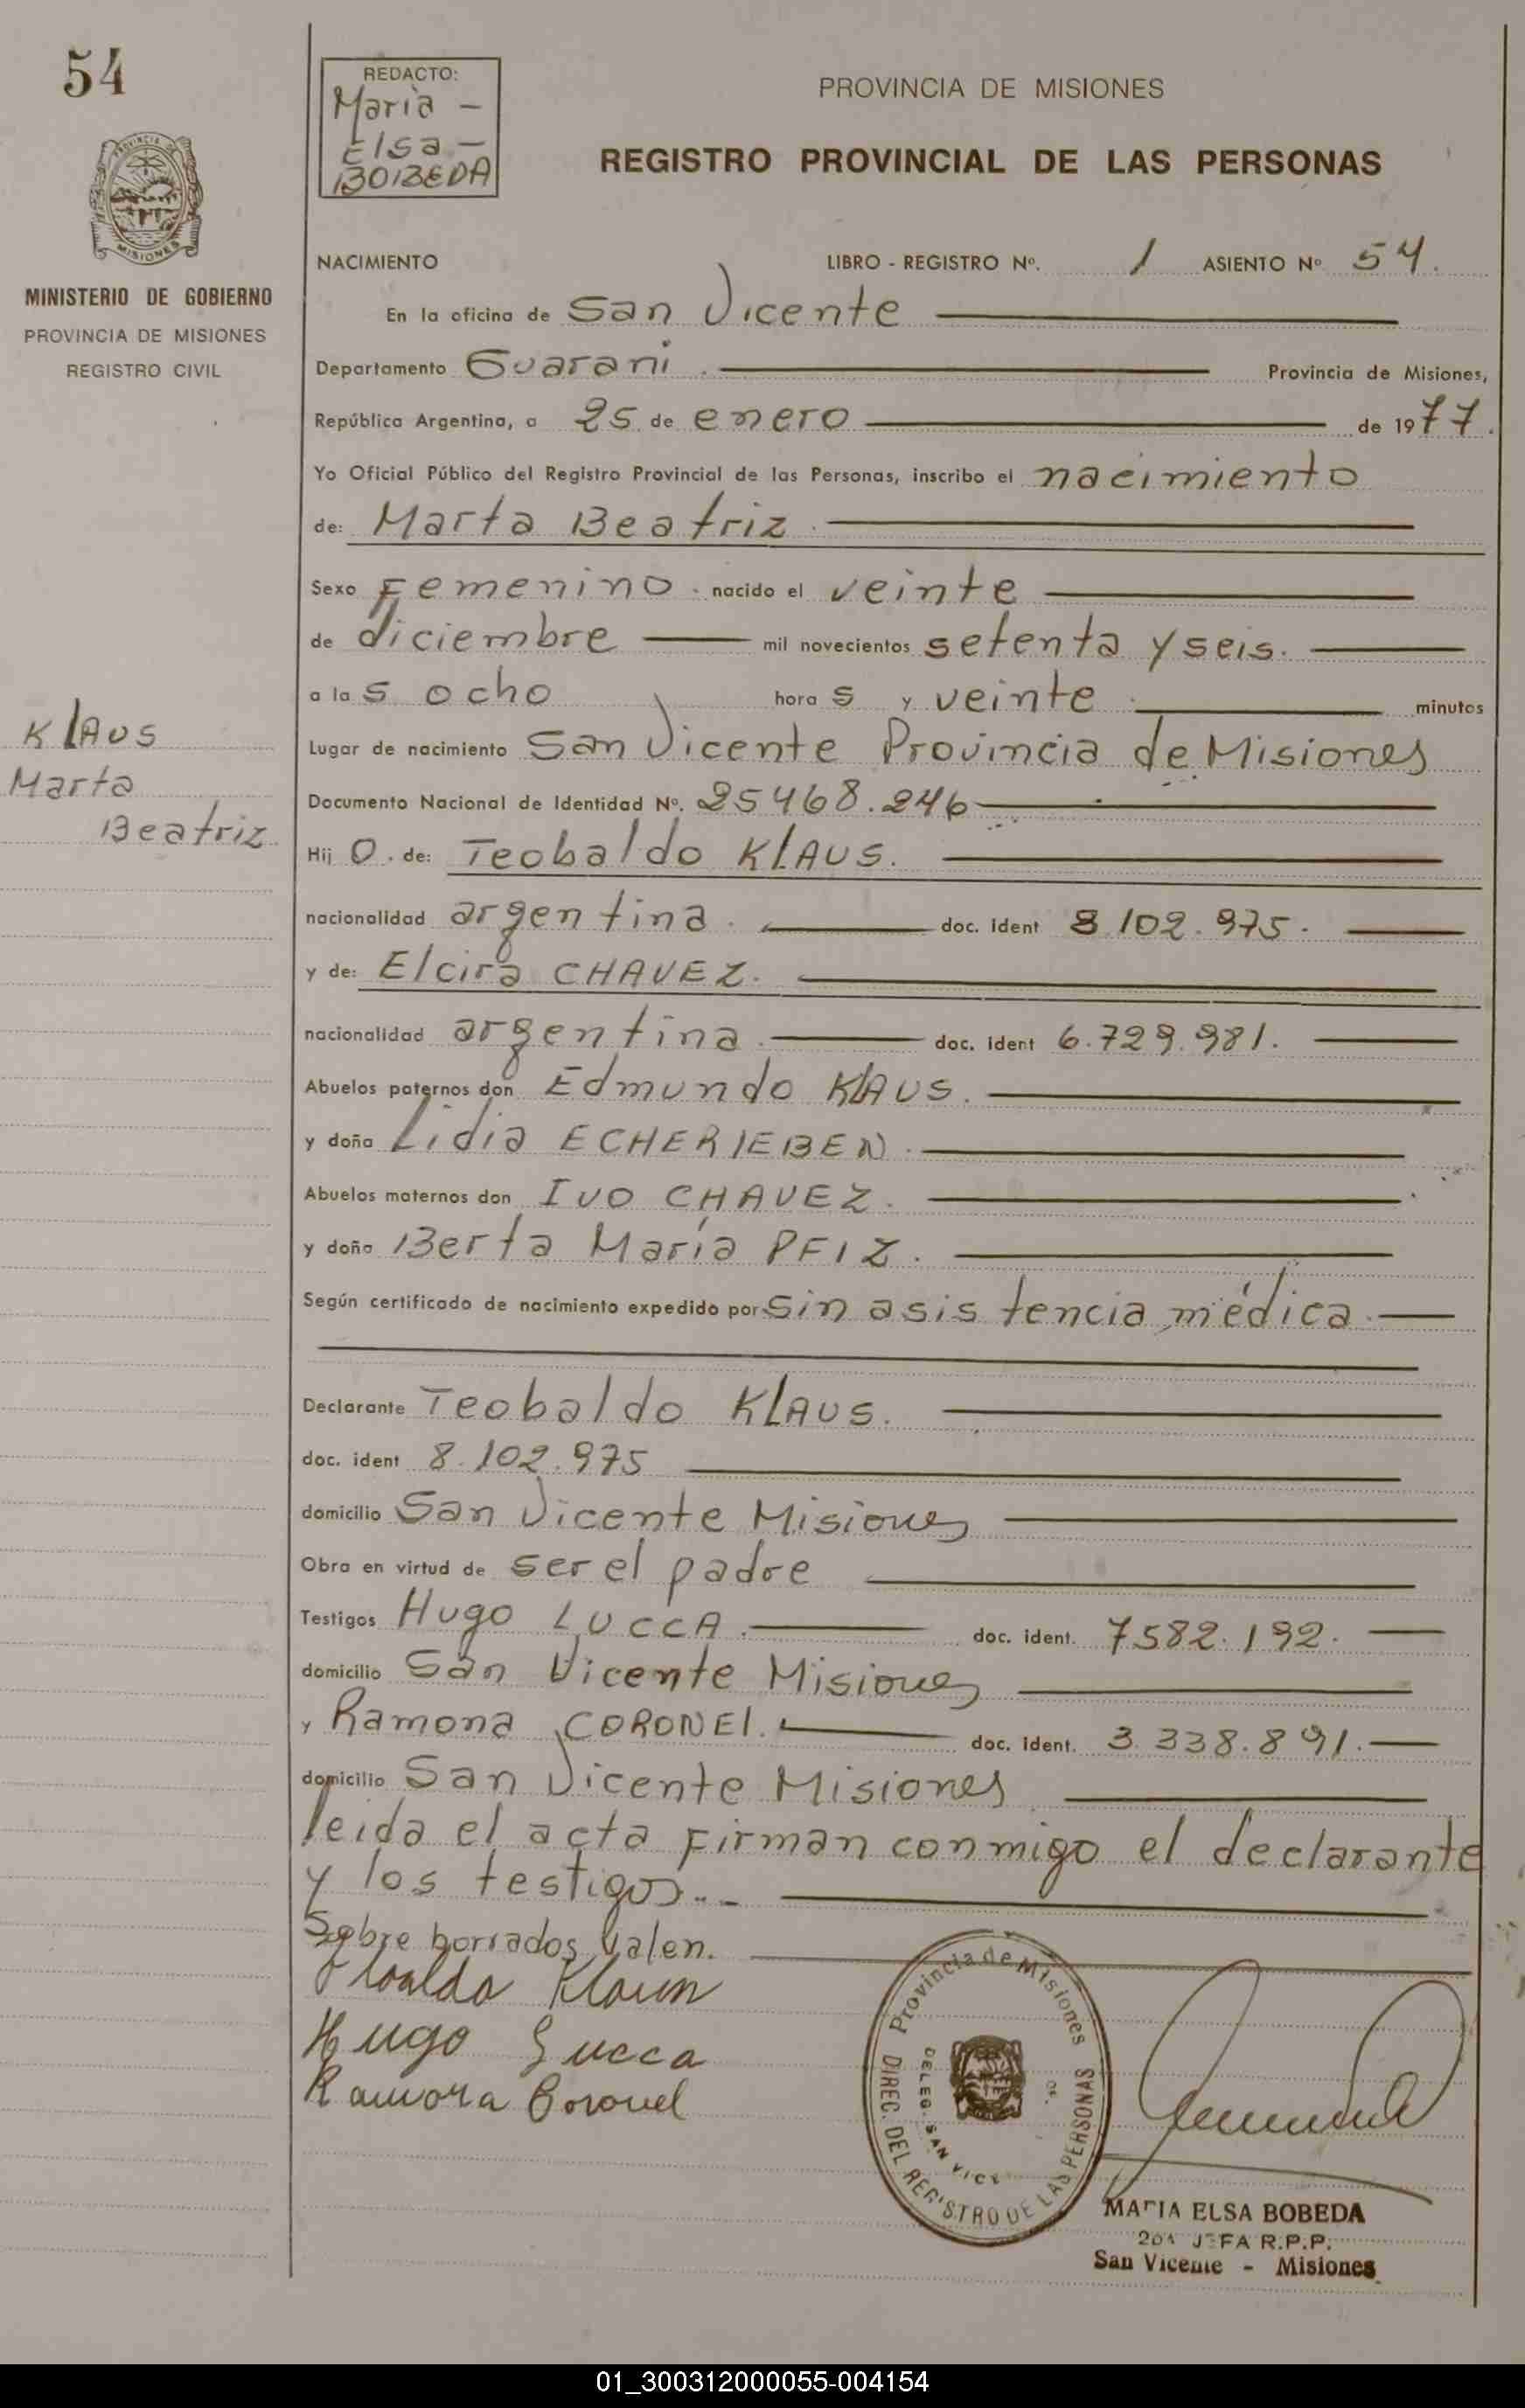 54
REDACTO:
Maria -
Elsa -
BOBEDA
PROVINCIA DE MISIONES
REGISTRO PROVINCIAL DE LAS PERSONAS
PROVINCIA DE
MISIONES
MINISTERIO DE GOBIERNO
PROVINCIA DE MISIONES
REGISTRO CIVIL
NACIMIENTO LIBRO - REGISTRO Nº. 1 ASIENTO Nº 54.
En la oficina de San Vicente
Departamento Guarani. Provincia de Misiones,
República Argentina, a 25 de enero de 1977.
Yo Oficial Público del Registro Provincial de las Personas, inscribo el nacimiento
de: Marta Beatriz.
Sexo Femenino. nacido el veinte
de diciembre mil novecientos setenta y seis.
a las ocho horas y veinte. minutos
Lugar de nacimiento San Vicente Provincia de Misiones
Documento Nacional de Identidad Nº. 25468.246
Hijo. de: Teobaldo KLAUS.
nacionalidad argentina. doc. ident 8.102.975.
y de: Elcira CHAVEZ.
nacionalidad argentina. doc. ident 6.729.981.
Abuelos paternos don Edmundo KLAUS.
y doña Lidia ECHERIEBEN.
Abuelos maternos don IVO CHAVEZ.
y doña Berta María PFIZ.
Según certificado de nacimiento expedido por sin asistencia médica.
Declarante Teobaldo KLAUS.
doc. ident 8.102.975
domicilio San Vicente Misiones
Obra en virtud de ser el padre
Testigos Hugo LUCCA. doc. ident. 7582.192.
domicilio San Vicente Misiones
y Ramona CORONEl. doc. ident. 3.338.891.
domicilio San Vicente Misiones
leida el acta Firman conmigo el declarante
y los testigos..-
Sobre borrados Valen.
KLAUS
Marta
Beatriz
Klaus
Hugo Lucca
Ramona Coronel
Provincia de Misiones
DIREC. DEL REGISTRO DE LAS PERSONAS
DELEG. SAN VICE
MARIA ELSA BOBEDA
2da JEFA R.P.P.
San Vicente - Misiones
01_300312000055-004154